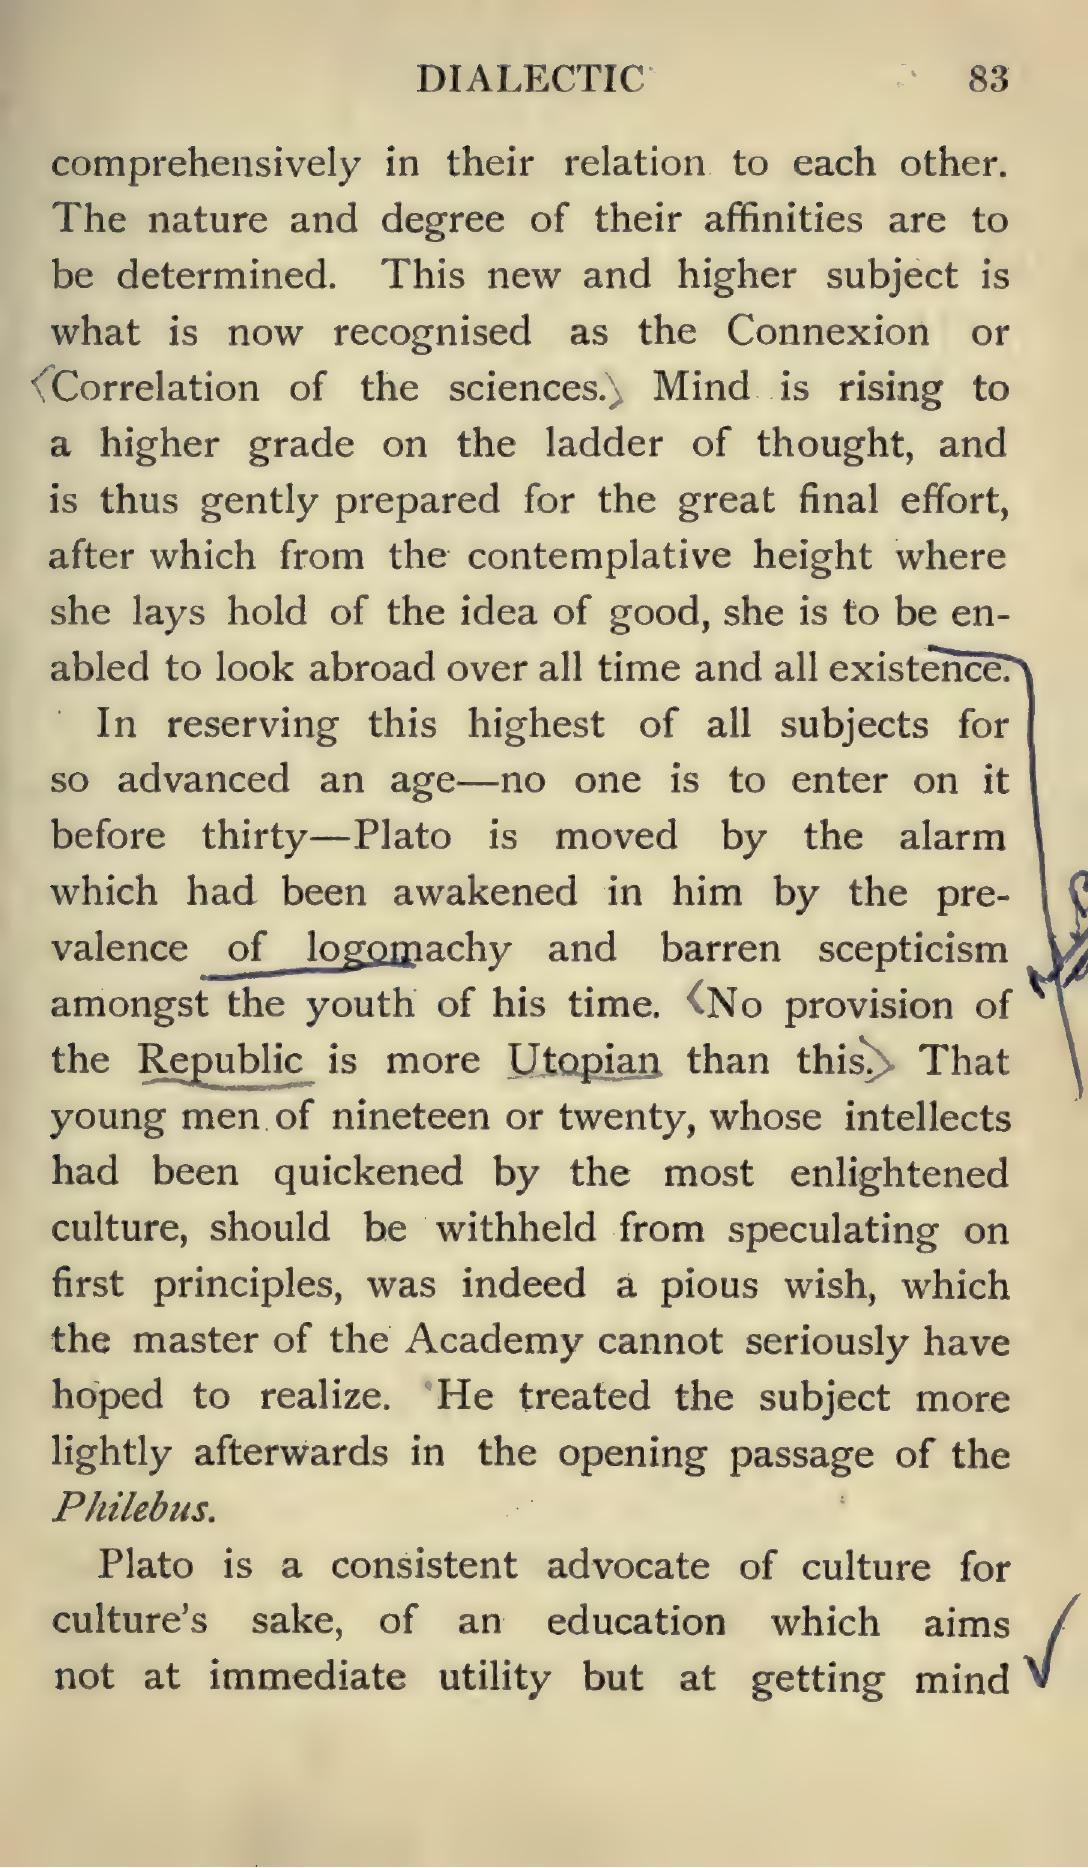 DIALECTIC 83
comprehensively in their relation to each other.
The nature and degree of their affinities are to
be determined. This new and higher subject is
what is now recognised as the Connexion or
Correlation of the sciences. Mind is rising to
a higher grade on the ladder of thought, and
is thus gently prepared for the great final effort,
after which from the contemplative height where
she lays hold of the idea of good, she is to be en-
abled to look abroad over all time and all existence.
In reserving this highest of all subjects for
so advanced an age—no one is to enter on it
before thirty—Plato is moved by the alarm
which had been awakened in him by the pre-
valence of logomachy and barren scepticism
amongst the youth of his time. No provision of
the Republic is more Utopian than this. That
young men of nineteen or twenty, whose intellects
had been quickened by the most enlightened
culture, should be withheld from speculating on
first principles, was indeed a pious wish, which
the master of the Academy cannot seriously have
hoped to realize. He treated the subject more
lightly afterwards in the opening passage of the
Philebus.
Plato is a consistent advocate of culture for
culture's sake, of an education which aims
not at immediate utility but at getting mind